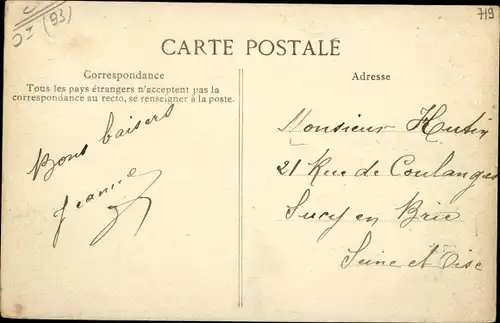 C
DI (93)
719
CARTE POSTALE
Correspondance
Tous les pays étrangers n'acceptent pas la
correspondance au recto, se renseigner à la poste.
Bons baisers
Jeanne
Adresse
Monsieur Hutin
21 Rue de Coulanges
Sucy en Brie
Seine et Oise